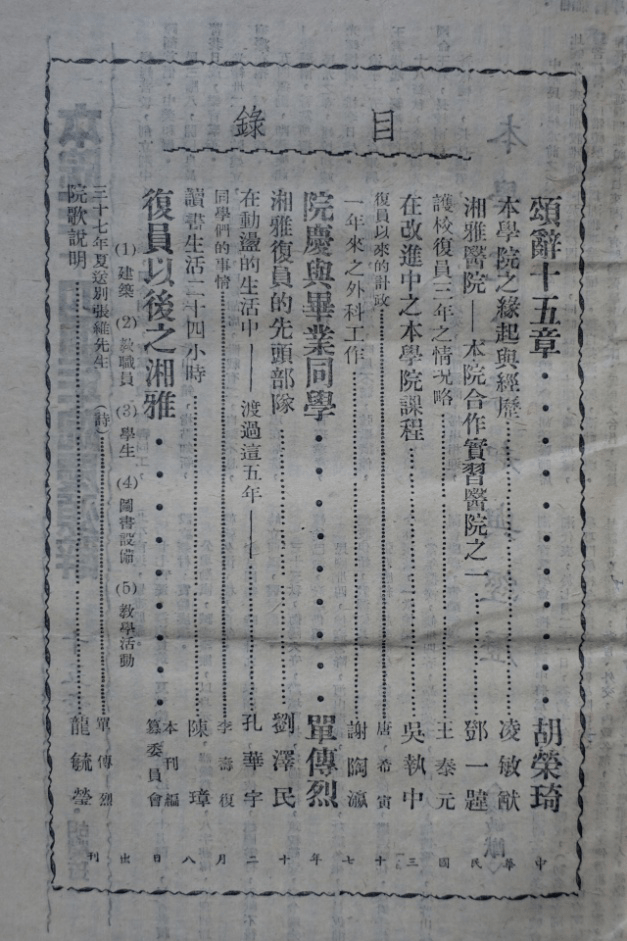 目錄
頌辭十五章 胡榮琦
本學院之緣起與經歷 凌敏猷
湘雅醫院——本院合作實習醫院之一 鄧一韙
護校復員三年之情況略 王泰元
在改進中之本學院課程 吳執中
復員以來的計政 唐希寅
一年來之外科工作 謝陶瀛
院慶與畢業同學 單傳烈
湘雅復員的先頭部隊 劉澤民
在動盪的生活中——渡過這五年—— 孔華宇
同學們的事情 李壽復
讀書生活二十四小時 陳璋
復員以後之湘雅 本刊編纂委員會
(1) 建築 (2) 教職員 (3) 學生 (4) 圖書設備 (5) 教學活動
三十七年夏送別張維先生(詩) 單傳烈
院歌說明 龍毓瑩
中華民國三十七年十二月八日出刊